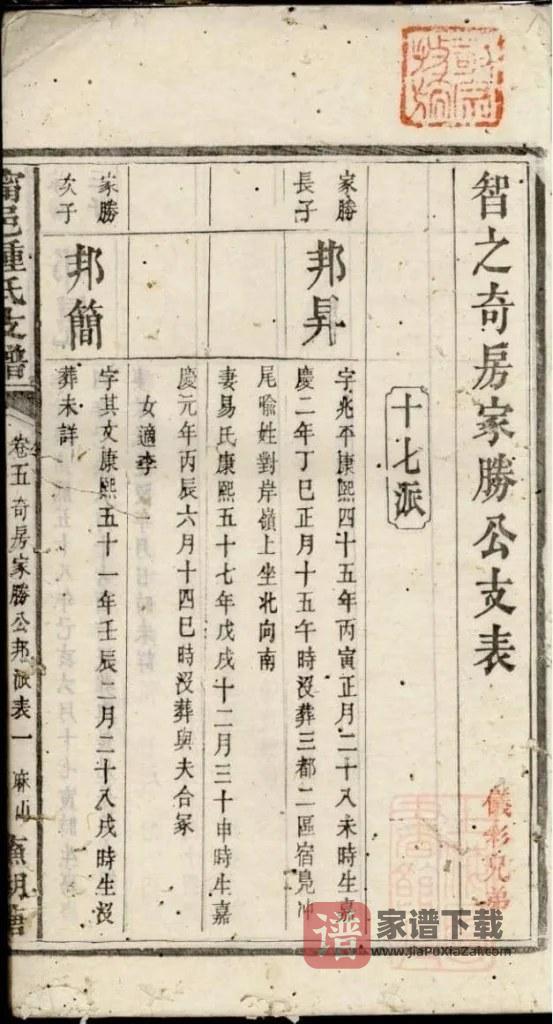 智之奇房家勝公支表
儀彩兄弟
十七派
家勝
長子
邦昇
字兆平康熙四十五年丙寅正月二十八未時生嘉
慶二年丁巳正月十五午時沒葬三都二區宿凫冲
尾喻姓對岸嶺上坐北向南
妻易氏康熙五十七年戊戌十二月三十申時生嘉
慶元年丙辰六月十四巳時沒葬與夫合冢
女適李
家勝
次子
邦簡
字其文康熙五十一年壬辰二月二十八戌時生沒
葬未詳
甯邑鍾氏支譜
卷五奇房家勝公邦派表一
麻山
譜
家谱下载
www.jiaPuXiaZai.com